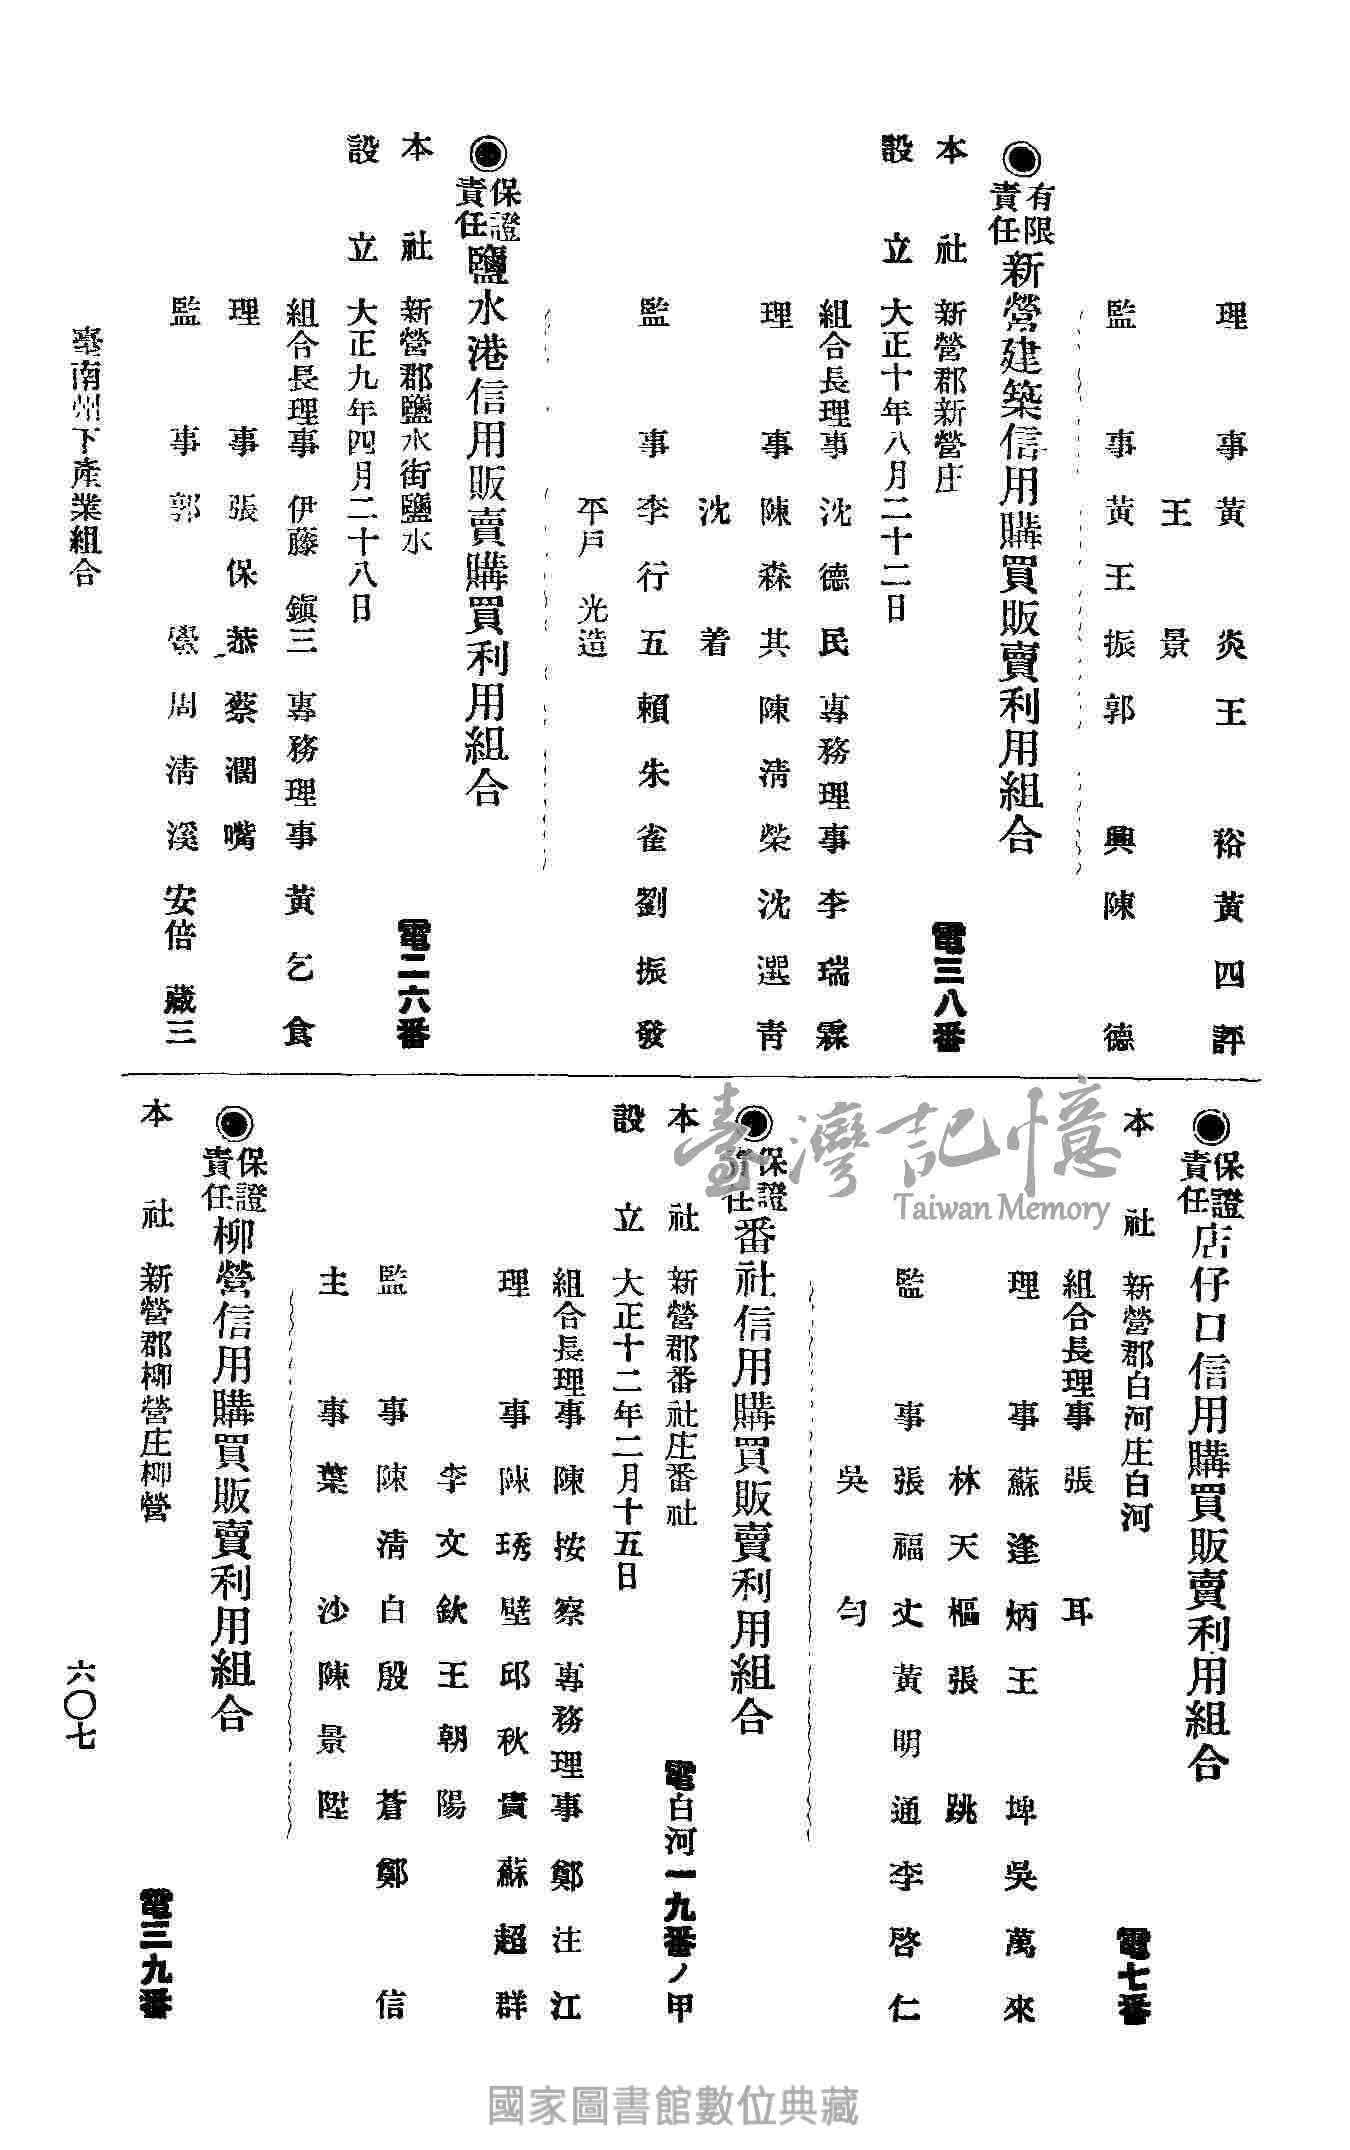 理事 黃炎 王裕 黃四評
王景
監事 黃王振 郭興 陳德
◉有限責任新營建築信用購買販賣利用組合
本社 新營郡新營庄 電三八番
設立 大正十年八月二十二日
組合長理事 沈德民 專務理事 李瑞霖
理事 陳森其 陳清榮 沈選青
沈着
監事 李行五 賴朱雀 劉振發
平戶光造
◉保證責任鹽水港信用販賣購買利用組合
本社 新營郡鹽水街鹽水 電二六番
設立 大正九年四月二十八日
組合長理事 伊藤鎭三 專務理事 黃乞食
理事 張保恭 蔡濶嘴
監事 郭 周清溪 安倍藏三
◉保證責任店仔口信用購買販賣利用組合
本社 新營郡白河庄白河 電七番
組合長理事 張耳
理事 蘇逢炳 王埤 吳萬來
林天樞 張跳
監事 張福丈 黃明通 李啓仁
吳勻
◉保證責任番社信用購買販賣利用組合
本社 新營郡番社庄番社 電白河一九番ノ甲
設立 大正十二年二月十五日
組合長理事 陳按察 專務理事 鄭注江
理事 陳琇壁 邱秋貴 蘇超群
李文欽 王朝陽
監事 陳清白 殷蒼 鄭信
主事 葉沙 陳景陞
◉保證責任柳營信用購買販賣利用組合
本社 新營郡柳營庄柳營 電三九番
臺南州下產業組合
六〇七
臺灣記憶
Taiwan Memory
國家圖書館數位典藏